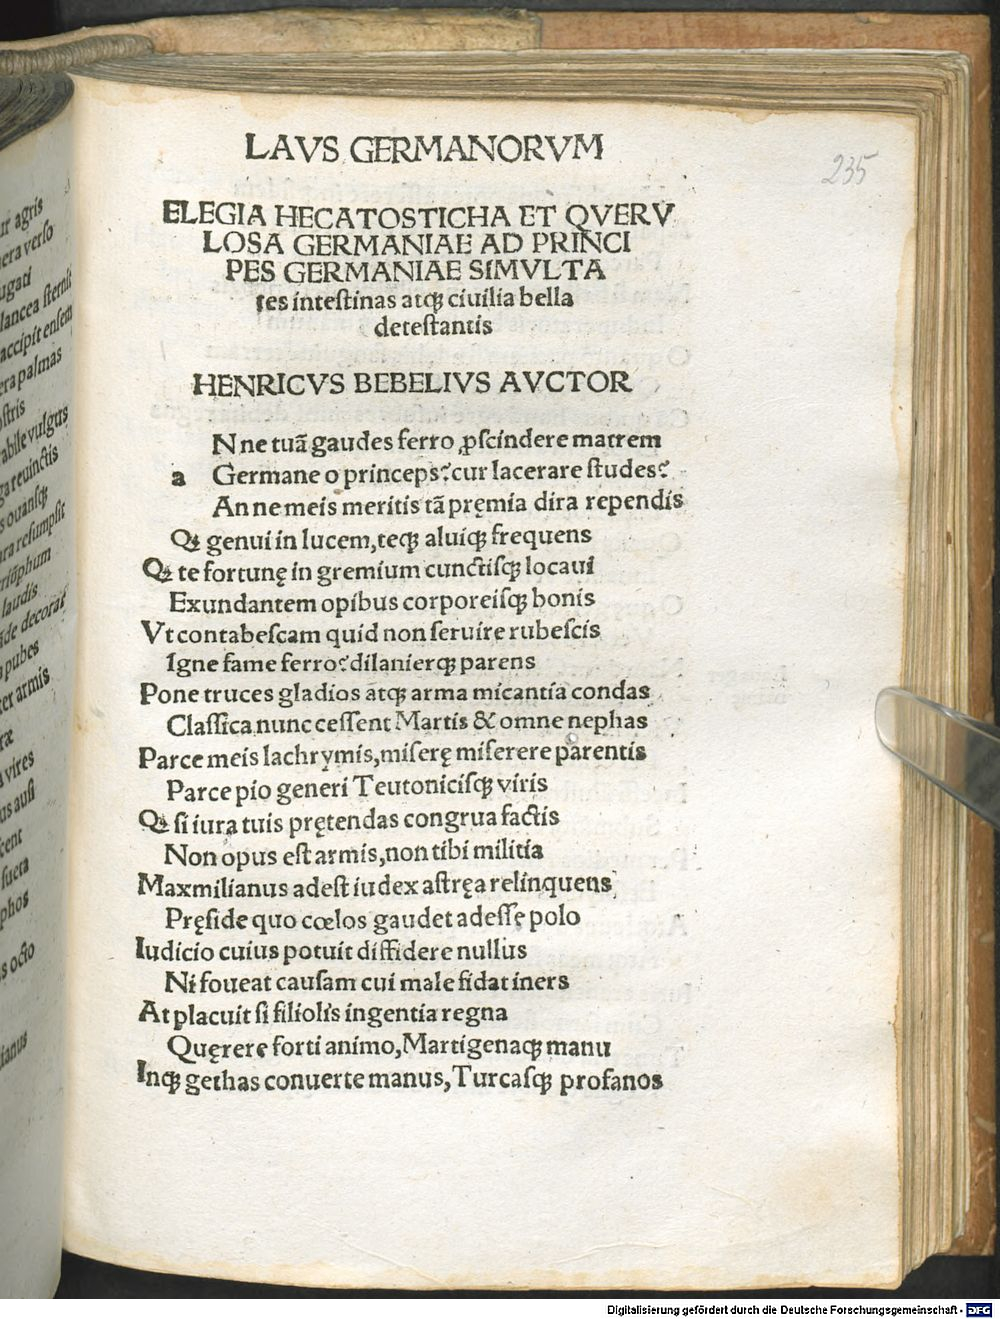 LAVS GERMANORVM
235
ELEGIA HECATOSTICHA ET QVERV
LOSA GERMANIAE AD PRINCI
PES GERMANIAE SIMVLTA
tes inteſtinas atqꝫ ciuilia bella
deteſtantis
HENRICVS BEBELIVS AVCTOR
a Nne tuā gaudes ferro ꝓſcindere matrem
Germane o princeps? cur lacerare ſtudes?
An ne meis meritis tā pręmia dira rependis
Qꝫ genui in lucem, teqꝫ aluiqꝫ frequens
Qꝫ te fortunę in gremium cunctiſqꝫ locaui
Exundantem opibus corporeiſqꝫ bonis
Vt contabeſcam quid non ſeruire rubeſcis
Igne fame ferro? dilanierqꝫ parens
Pone truces gladios ātqꝫ arma micantia condas
Claſſica nunc ceſſent Martis & omne nephas
Parce meis lachrymis, miſerę miſerere parentis
Parce pio generi Teutoniciſqꝫ viris
Qꝫ ſi iura tuis prętendas congrua factis
Non opus eſt armis, non tibi militia
Maxmilianus adeſt iudex aſtręa relinquens
Pręſide quo cœlos gaudet adeſſę polo
Iudicio cuius potuit diffidere nullus
Ni foueat cauſam cui male fidat iners
At placuit ſi filiolis ingentia regna
Quęrere forti animo, Martigenaqꝫ manu
Inqꝫ gethas conuerte manus, Turcaſqꝫ profanos
ur agris
era verſo
ugati
lancea ſternit
accipit enſem
era palmas
oſtris
rabile vulgus
ga reuinctis
s ouanſqꝫ
ura reſumpſit
laudis
āde decorat
pubes
ter armis
ræ
vires
us auſi
ſcent
ſueta
phos
s octo
lianus
Digitalisierung gefördert durch die Deutsche Forschungsgemeinschaft - DFG